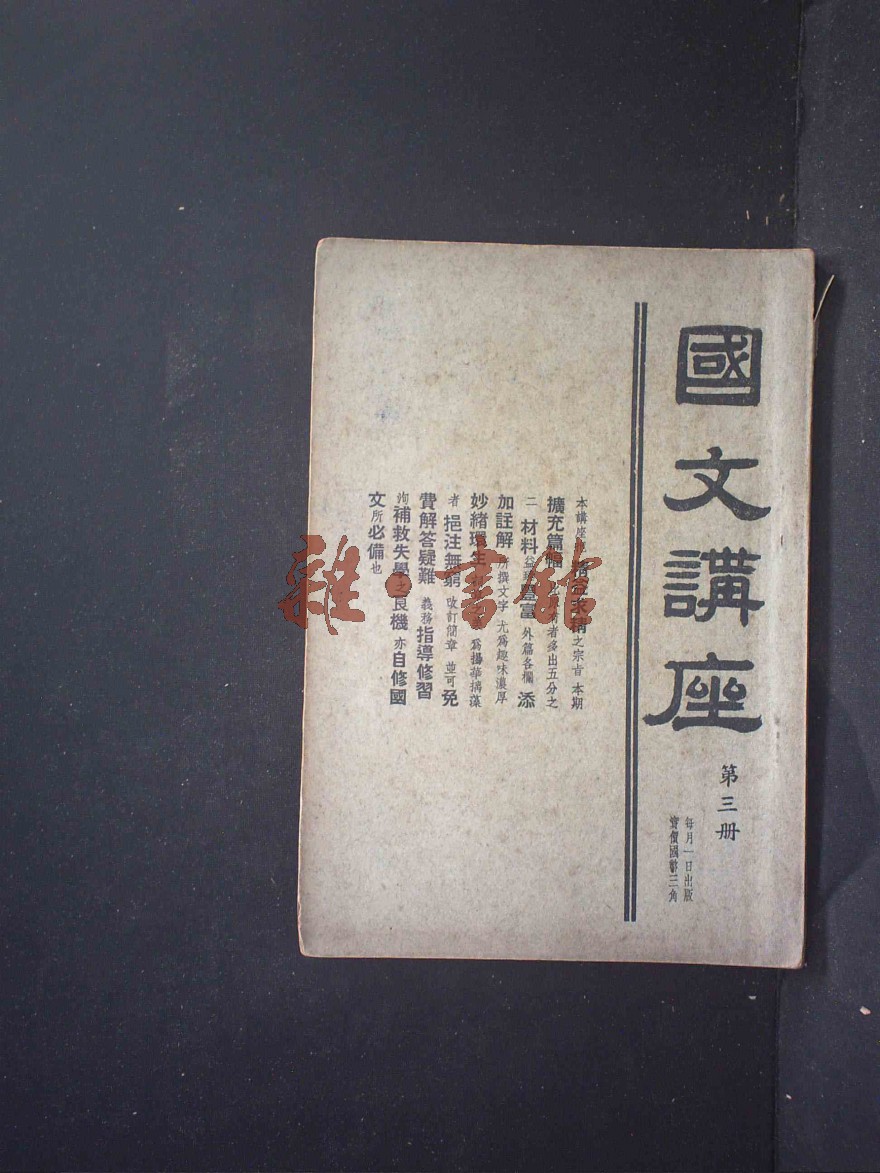 國文講座
第三册
每月一日出版
實價國幣三角
本講座 精益求精之宗旨 本期
擴充篇幅 者多出五分之
二 材料益 豐富 外篇各欄 添
加註解 所撰文字 尤爲趣味濃厚
妙緒環生 爲揚華摛藻
者 挹注無窮 改訂簡章 並可免
費解答疑難 義務指導修習
洵補救失學之良機 亦自修國
文所必備也
雜·書館